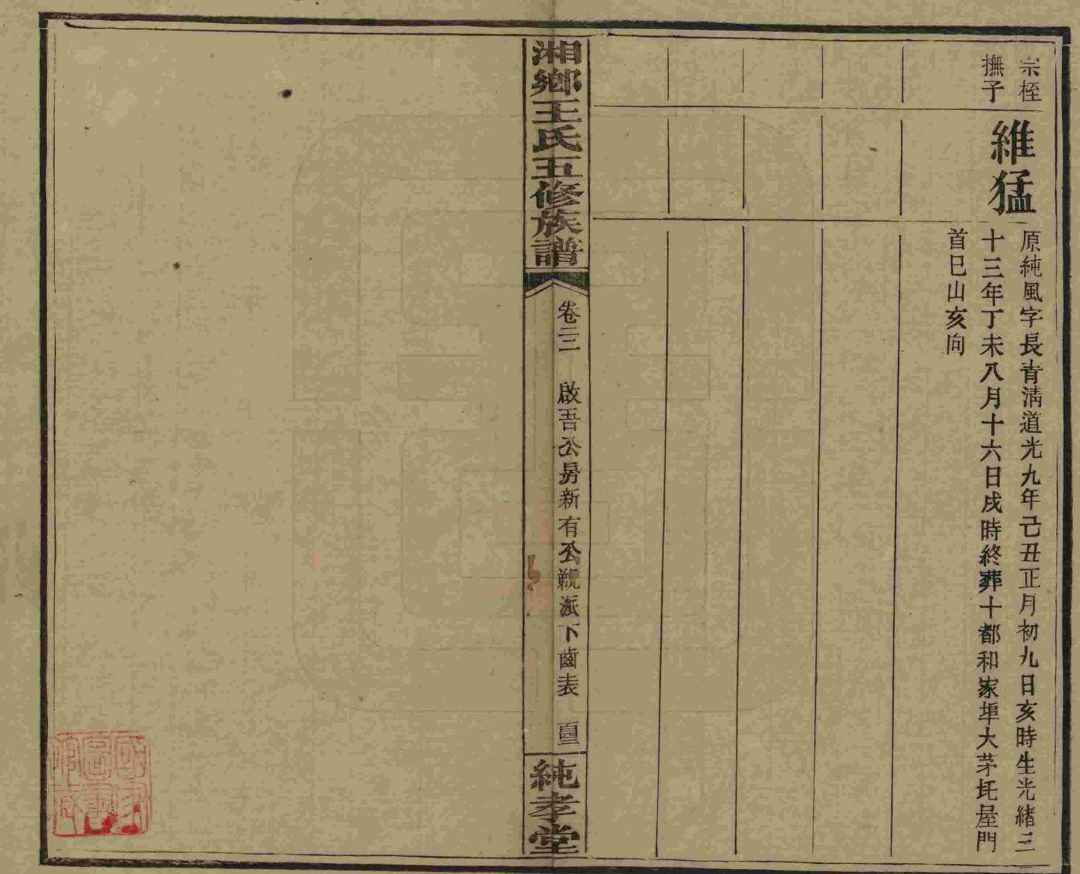 宗桎
撫子
維猛
原純風字長青清道光九年己丑正月初九日亥時生光緒三
十三年丁未八月十六日戌時終葬十都和家埠大茅坉屋門
首巳山亥向
湘鄉王氏五修族譜
卷
啟吾公房新有公派下齒表
純孝堂